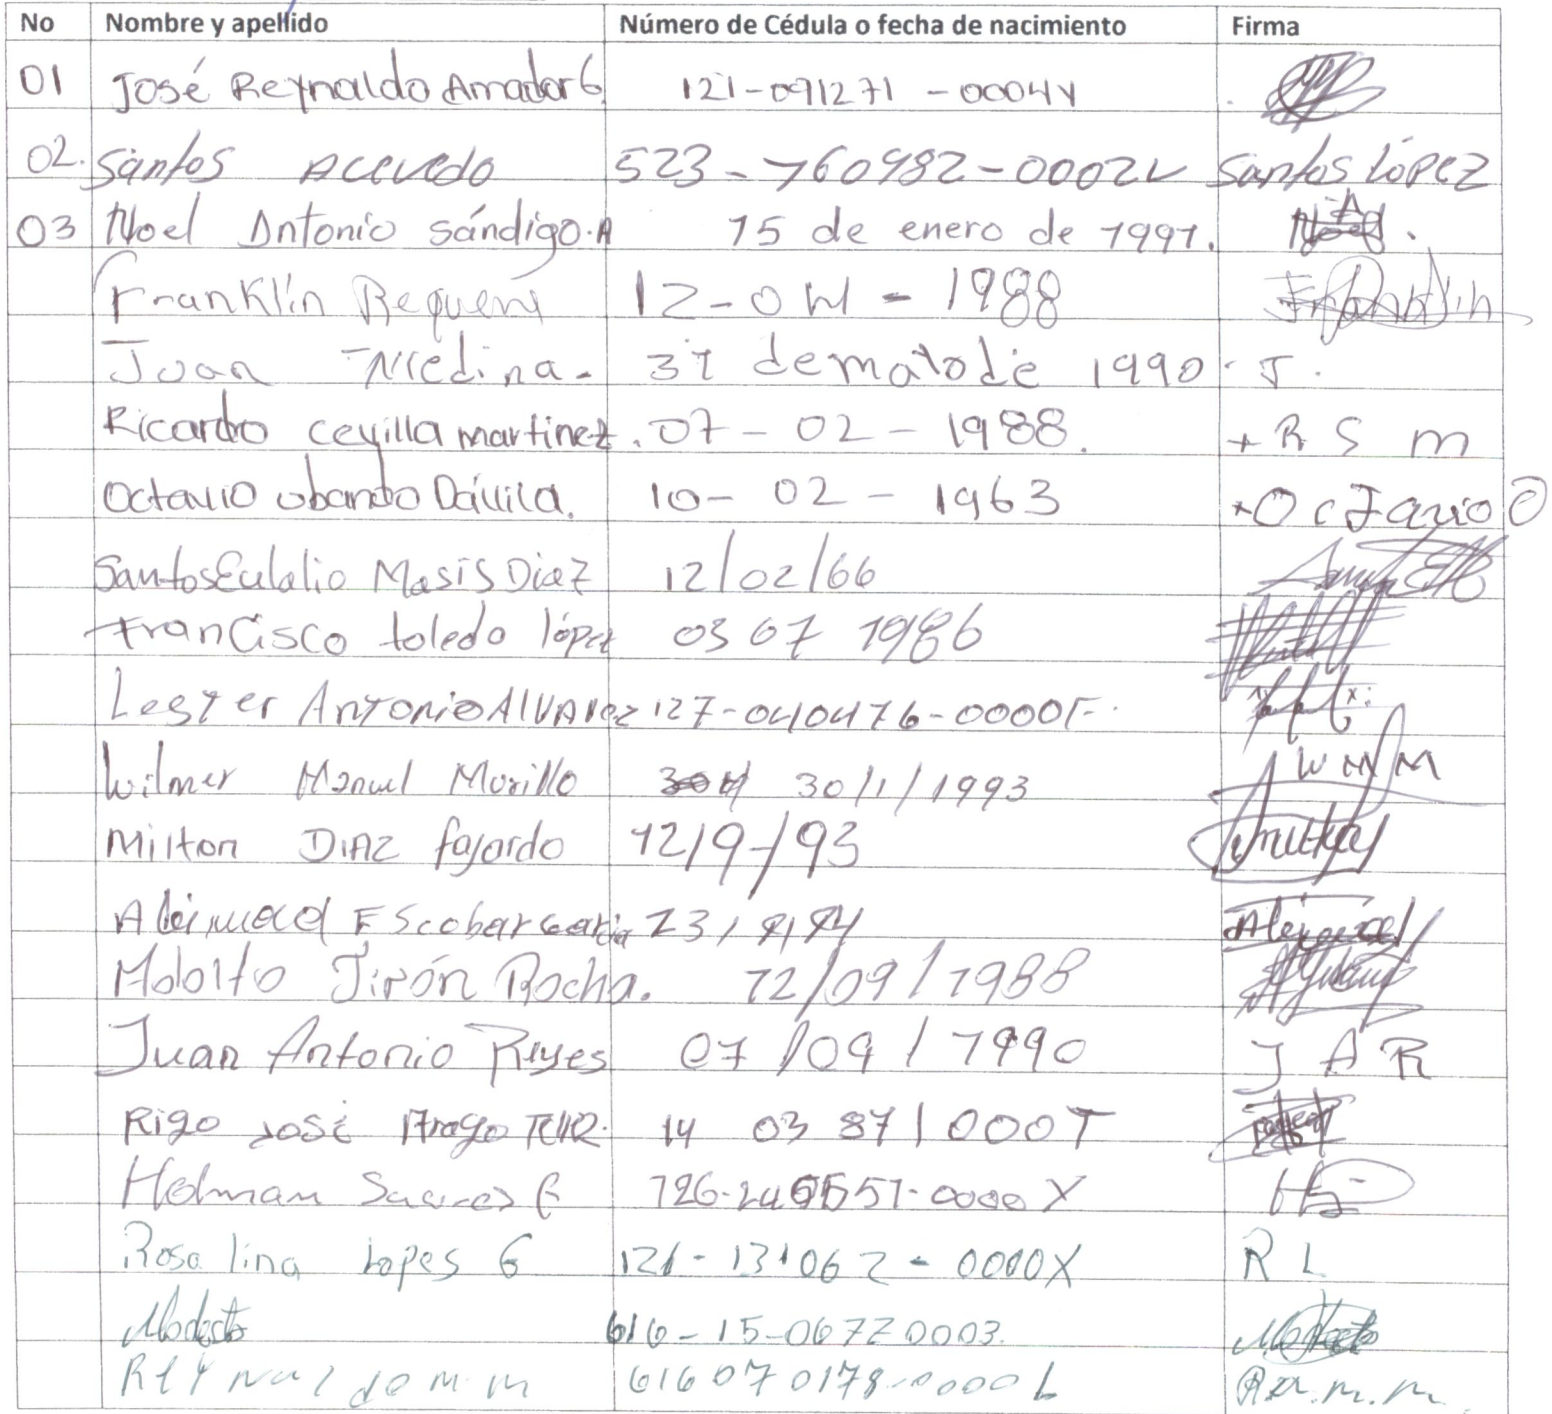 No Nombre y apellido Número de Cédula o fecha de nacimiento Firma
01 José Reynaldo Amador G 121-091271-0004Y
02. Santos Acevedo 523-160982-0002L Santos López
03 Noel Antonio Sándigo.A 15 de enero de 1991. Noel.
Franklin Requene 12-04-1988 Franklin
Juan Medina- 31 de mayo de 1990 J.
Ricardo ceyilla martinez. 07-02-1988. + R S m
Octavio obando Dávila. 10-02-1963 +Octavio O
Santos Eulalio Masis Diaz 12/02/66
Francisco toledo lópez 03 07 1986
Lester Antonio Alvarez 127-040476-0000F.
Wilmer Manuel Murillo 30/1/1993 W M M
Milton DIAZ fajardo 12/9/93
Escobar Garcia
Adolfo Jirón Rocha. 12/09/1988
Juan Antonio Reyes 07/09/1990 J A R
Rigo José 14 03 87/000T
Holman Suares G 0000X
Rosa lina Lopes G 121-131062-0000X R L
Modesto 616-15-0672 0003. Modesto
Reynaldo M. M 616 070178-0000L Rey. m. m.